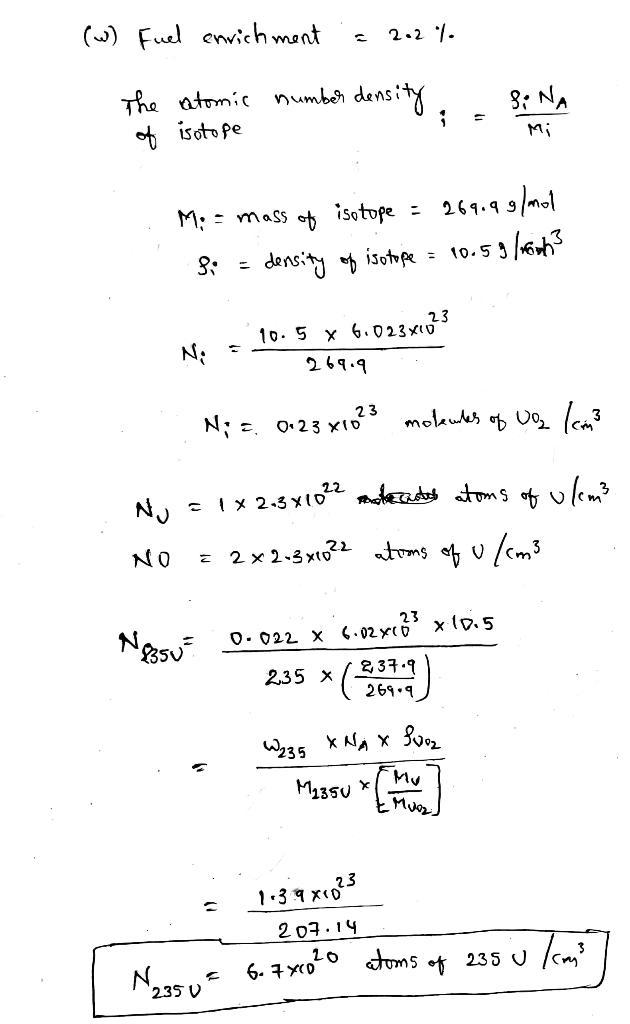 (w) Fuel enrichment = 2.2 %.
The atomic number density ; = ρi NA / Mi
of isotope
Mi = mass of isotope = 269.9 g/mol
ρi = density of isotope = 10.5 g/cm³
Ni = 10.5 x 6.023x10²³ / 269.9
Ni = 0.23 x10²³ molecules of UO₂ /cm³
NU = 1 x 2.3x10²² atoms of U/cm³
NO = 2 x 2.3x10²² atoms of U /cm³
N235U = 0.022 x 6.02x10²³ x 10.5 / 235 x (237.9 / 269.9)
= W235 x NA x ρUO2 / M235U x [MU / MUO2]
= 1.39 x10²³ / 207.14
N235U = 6.7x10²⁰ atoms of 235 U /cm³